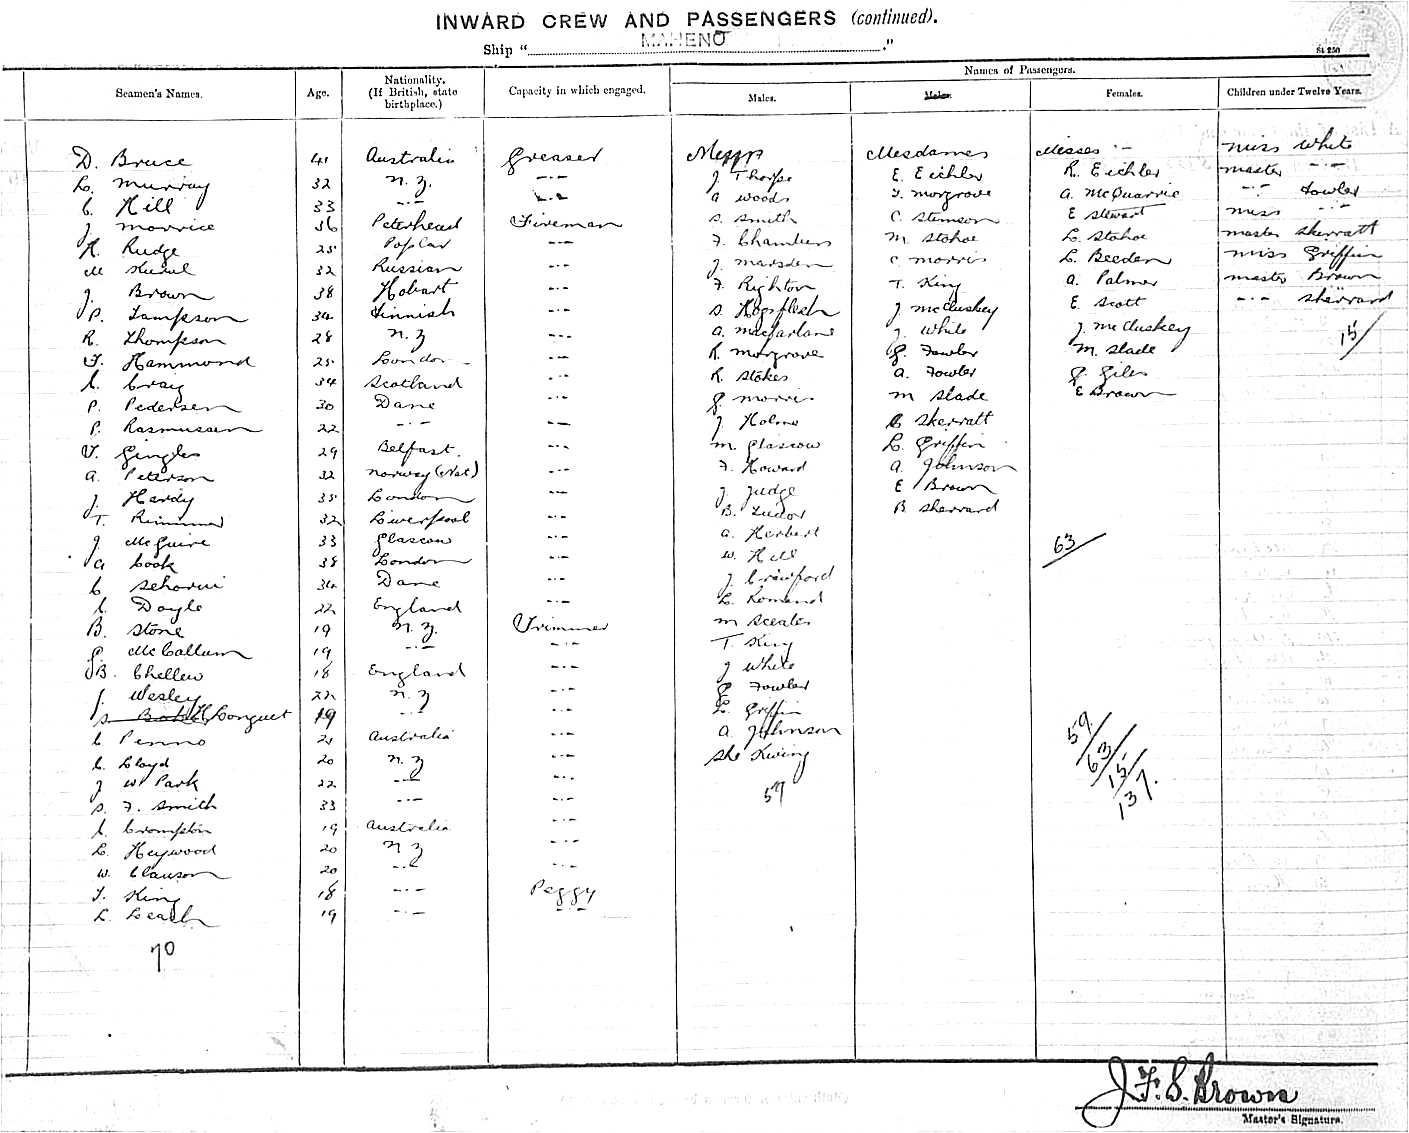 INWARD CREW AND PASSENGERS (continued).
Ship "MAHENO."
Names of Passengers.
Seamen's Names. Age. Nationality. (If British, state birthplace.) Capacity in which engaged. Males. Males. Females. Children under Twelve Years.
D. Bruce 41 Australia Greaser Messrs Mesdames Misses Miss White
L. Murray 32 N.Z. -"- J Thorpe E. Eichler R. Eichler Master -"-
C. Hill 33 -"- -"- A Woods F. Morgrove A. McQuarrie -"- Fowler
J Morrice 36 Peterhead Fireman S. Smith C Stemson E Stewart Miss -"-
R. Rudge 25 Poplar -"- F. Chambers M Stohoe L. Stohoe Master Skerratt
M 32 Russian -"- J. Marsden C Morris L. Beeden Miss Griffin
J. Brown 38 Hobart -"- F. Righton T. King A. Palmer Master Brown
P. Lampson 34 Finnish -"- S. Hogsflesh J McCluskey E Scott -"- Sherrard
R. Thompson 28 N.Z -"- A. Macfarlane J. White J. McCluskey 15
F. Hammond 25 London -"- R. Morgrove G. Fowler M. Slade
C. Craig 34 Scotland -"- R. Stokes A. Fowler G. Giles
P. Pedersen 30 Dane -"- G Morris M Slade E Brown
P. Rasmussen 22 -"- -"- J Holme C Skerratt
V. Gingles 29 Belfast. -"- M. Glascow L. Griffin
A. Peterson 32 Norway (Nat) -"- F. Howard A. Johnson
J. Hardy 35 London -"- J Judge E Brown
T. Rimmer 32 Liverpool -"- B. Tudor B Sherrard
J. McGuire 33 Glascow -"- A. Herbert 63
A Cook 38 London -"- W. Hill
C 34 Dane -"- J Crawford
C. Doyle 22 England -"- L.
B. Stone 19 N.Z. Trimmer M Sceales
G. McCallum 19 -"- -"- T. King
B. Chellew 18 England -"- J White
J. Wesley 22 N.Z -"- G Fowler
H Conquet 19 -"- -"- L. Griffin
C Penno 21 Australia -"- A. Johnson
C. Lloyd 20 N.Z -"- 
J W Park 22 -"- -"- 57
S. F. Smith 33 -"- -"- 59/63/15/137.
C. Crompton 19 Australia -"-
L. Heywood 20 N Z -"-
W. Clauson 20 -"- -"-
F. King 18 -"- Peggy
L. Leach 19 -"- -"-
70
J.F.S. Brown
Master's Signature.